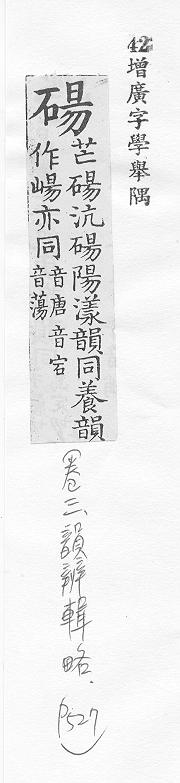 42增廣字學舉隅
碭
芒碭沆碭陽漾韻同養韻
作崵亦同
音唐音宕
音蕩
(卷三、韻辨輯略. P527)